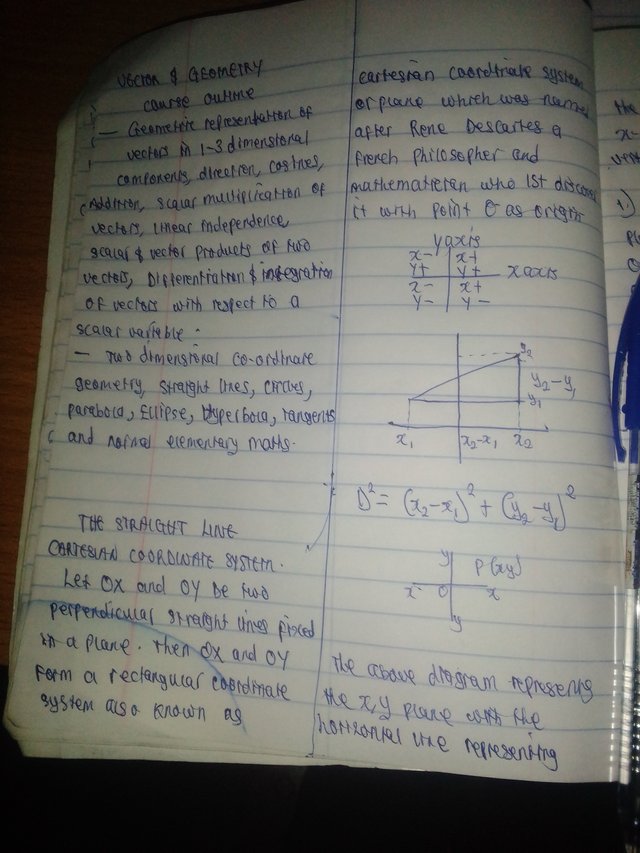 VECTOR & GEOMETRY
course outline
— Geometric representation of
vectors in 1-3 dimensional
components, direction, cosines,
Addition, scalar multiplication of
vectors, linear independence,
scalar & vector products of two
vectors, Differentiation & integration
of vectors with respect to a
scalar variable.
— Two dimensional co-ordinate
geometry, straight lines, circles,
parabola, Ellipse, Hyperbola, Tangents
and normal elementary maths.
THE STRAIGHT LINE
CARTESIAN COORDINATE SYSTEM.
Let OX and OY be two
perpendicular straight lines fixed
in a plane. Then OX and OY
form a rectangular coordinate
system also known as
cartesian coordinate system
or plane which was named
after Rene Descartes a
French Philosopher and
mathematician who 1st discover
it with point O as origin
y axis
x- x+
y+ y+
x axis
x- x+
y- y-
y₂
y₂-y₁
y₁
x₁ x₂-x₁ x₂
D² = (x₂-x₁)² + (y₂-y₁)²
y P(xy)
x- O x
-y
The above diagram represents
the x,y plane with the
horizontal line representing
the